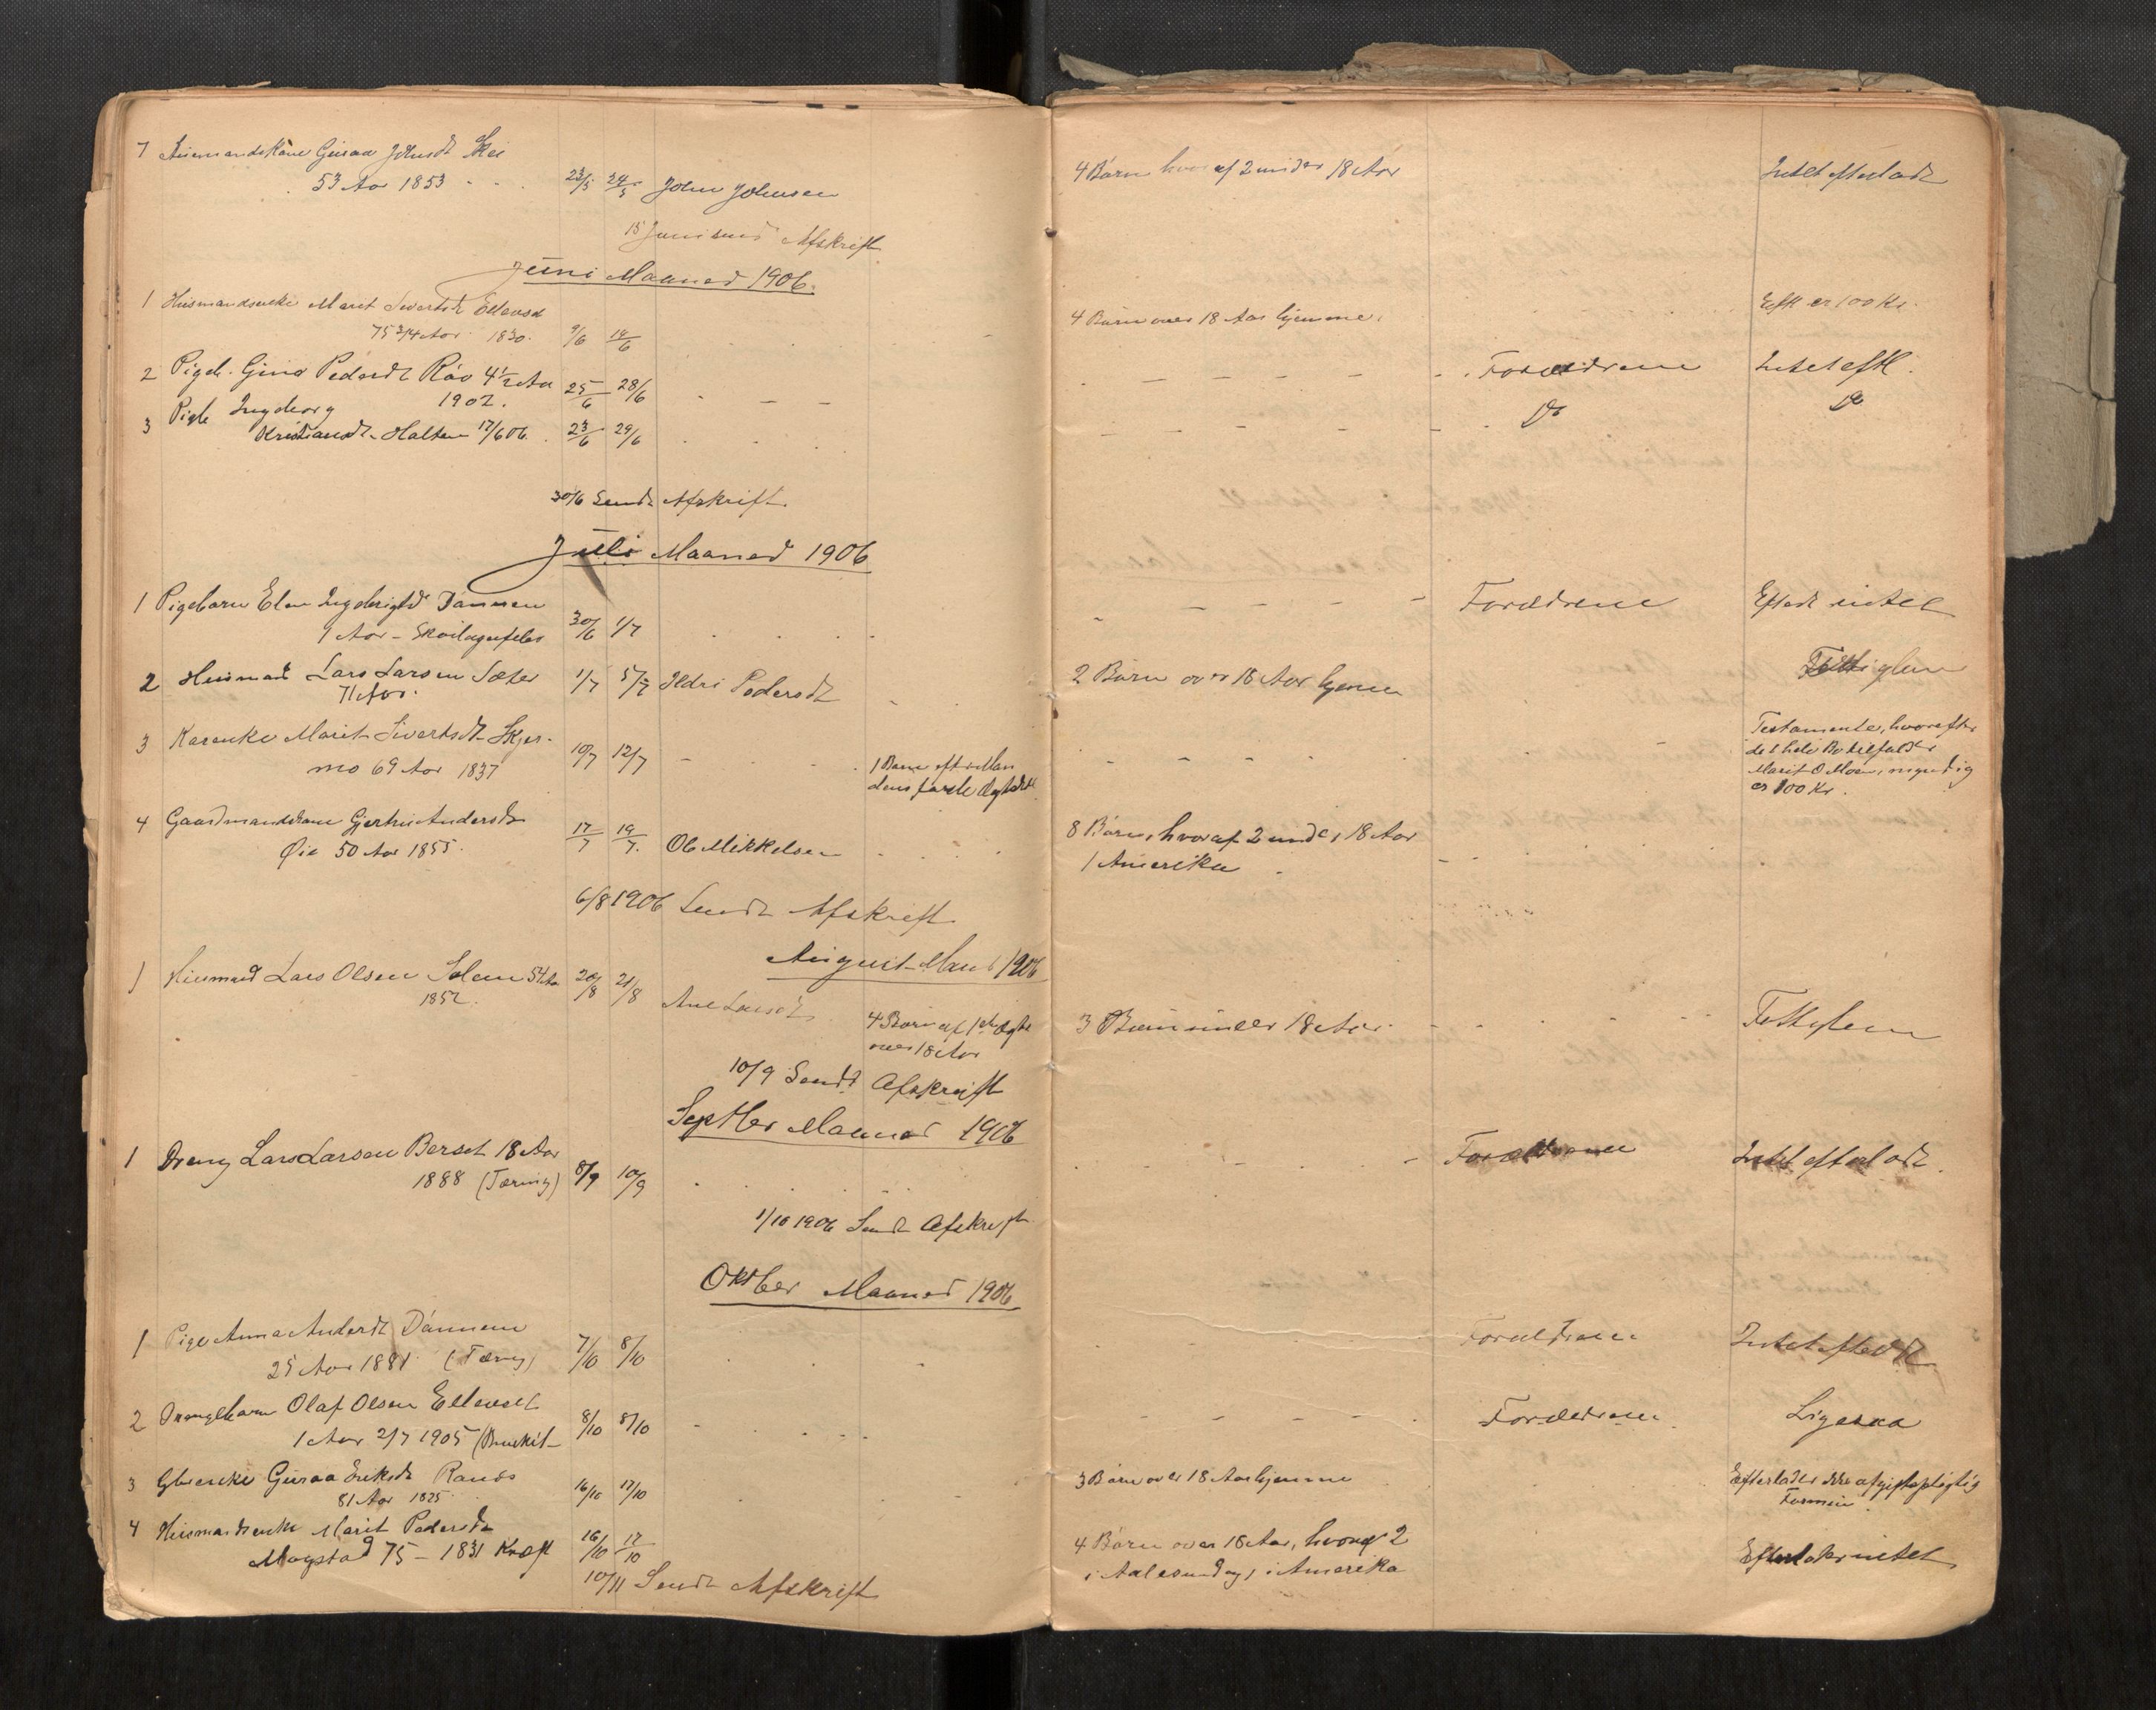 7 Huusmandskone Guraa Johnsdt Skei
53 Aar 1853 23/5 24/5 John Johnsen 4 Børn hvoraf 2 under 18 Aar Intet efterladt
15 Juni sendt Afskrift
Juni Maaned 1906.
1 Husmandsenke Marit Sivertsdt Ellevset
75 3/4 Aar 1830. 9/6 14/6 4 Børn over 18 Aar hjemme. Efth er 100 Kr.
2 Pigeb. Gina Pedersdt Røv 4 1/2 Aar
1902. 25/6 28/6 Forældrene Intet eftl.
3 Pigeb Ingeborg
Kristiansdt Halten 17/6 06. 23/6 29/6 Do Do
30/6 Sendt Afskrift.
Juli Maaned 1906
1 Pigebarn Elen Ingebrigtsd
1 Aar - 30/6 1/7 Forældrene Efterl intet
2 Husmand Lars Larsen Sæter
71 Aar. 1/7 5/7 Ildri Pedersdt 2 Børn over 18 Aar hjemme Fattiglem
3 Kaarenke Marit Sivertsdt Skjer-
mo 69 Aar 1837 10/7 12/7
1 Barn efter Man
dens første Ægteskb
Testamente, hvorefter
det hele Bo tilfalder
Marit O Moen, myndig
er 100 Kr.
4 Gaardmandskone Gjertru Andersdt
Øie 50 Aar 1855. 17/7 19/7. Ole Mikkelsen 8 Børn, hvoraf 2 under 18 Aar
1 Amerika
6/8 1906 Sendt Afskrift
August Maaned 1906
1 Husmand Lars Olsen Solem 54 Aar
1852. 20/8 21/8 Ane Larsdt
4 Børn af 1ste Ægte
over 18 Aar
3 Børn under 18 Aar. Fattiglem
10/9 Sendt Afskrift
Septber Maaned 1906
1 Dreng Lars Larsen Berset 18 Aar
1888 (Tæring) 8/9 10/9 Forældrene Intet efterladt.
1/10 1906 Sendt Afskrift
Oktber Maaned 1906
1 Pige Anna Andersdt
25 Aar 1881 (Tæring) 7/10 8/10 Forældrene Intet efterladt
2 Drengebarn Olaf Olsen Ellevset
1 Aar 2/7 1905 (Bronkit- 8/10 8/10 Forældrene Ligesaa
3 Guraa Eriksdt Rands
81 Aar 1825 16/10 17/10 3 Børn over 18 Aar hjemme Efterlader ikke afgiftspligtig
Formue
4 Husmandsenke Marit Pedersdt
Mogstad 75 - 1831 Kræft 16/10 17/10 4 Børn over 18 Aar, hvoraf 2
i Aalesund og 1 i Amerika Efterlader intet
10/11 Sendt Afskrift